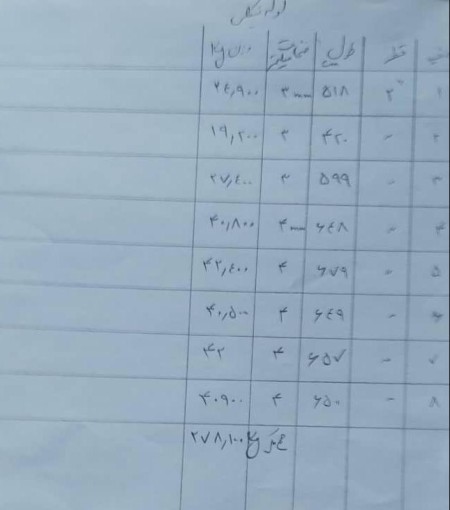 لوله
ردیف قطر طول ضخامت میلیمتر وزن kg
۱ ۲" ۵۱۸ ۳mm ۲٤,۹۰۰
۲ - ۴۲۰ ۳ ۱۹,۲۰۰
۳ - ۵۹۹ ۳ ۲۷,٤۰۰
۴ - ۶٤۸ ۴mm ۴۰,۸۰۰
۵ - ۶۷۹ ۴ ۴۲,٤۰۰
۶ - ۶٤۹ ۴ ۴۰,۵۰۰
۷ - ۶۵۷ ۴ ۴۲
۸ - ۶۵۰ ۴ ۴۰,۹۰۰
جمع kg ۲۷۸,۱۰۰